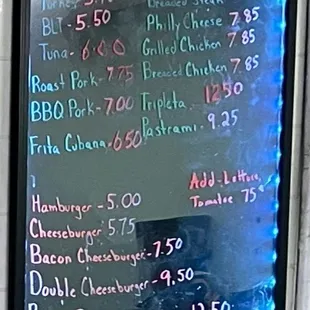 Turkey
BLT - 5.50
Tuna - 6.00
Roast Pork - 7.75
BBQ Pork - 7.00
Frita Cubana - 6.50
Breaded Steak
Philly Cheese 7.85
Grilled Chicken 7.85
Breaded Chicken 7.85
Tripleta . 12.50
Pastrami . 9.25
Add - Lettuce,
Tomatoe 75¢
Hamburger - 5.00
Cheeseburger 5.75
Bacon Cheeseburger - 7.50
Double Cheeseburger - 9.50
12.50